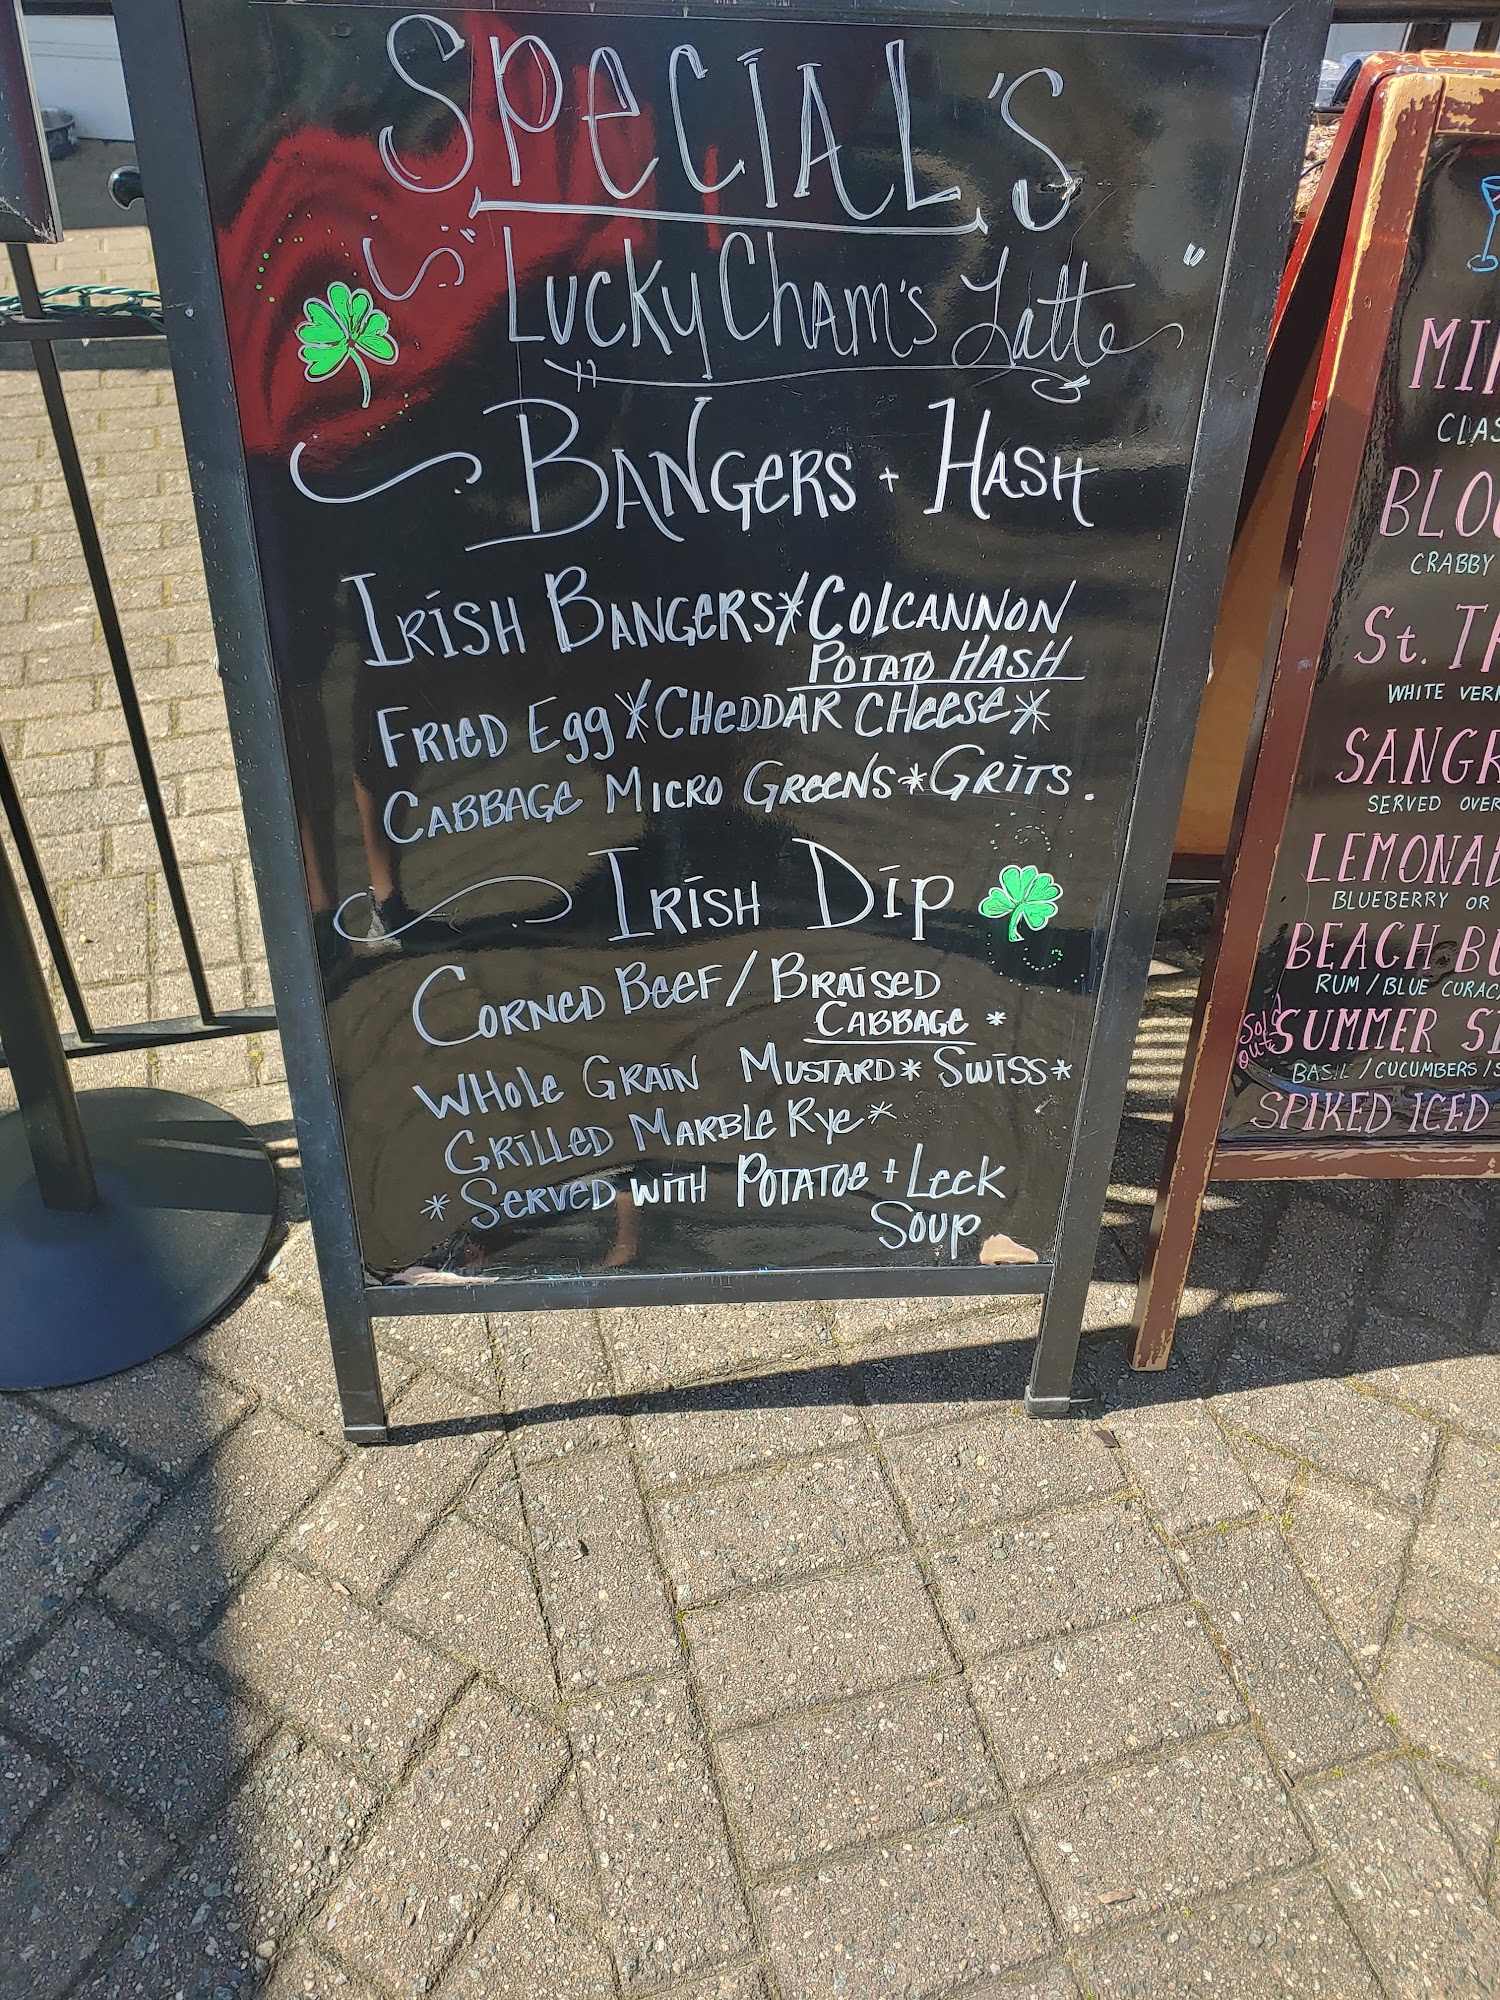 SPeCIAL'S
"LUCKY CHAM'S Latte"
BANGeRS + HASH
IRISH BANGeRS * COLCANNON
POTATO HASH
FRIED Egg * CHeDDAR CHeeSe *
CABBAGe MICRO GREENS * GRITS.
IRISH DIP
CORNED BeeF / BRAISED
CABBAGe *
WHOLe GRAIN MUSTARD * SWISS *
GRILLED MARBLe RYe *
* SERVED WITH POTATOe + LeeK
SOUP
CRABBY
St.
SERVED
BLUEBERRY OR
BEACH
RUM / BLUE
Sold
out
SUMMER
BASIL / CUCUMBERS /
SPIKED ICED